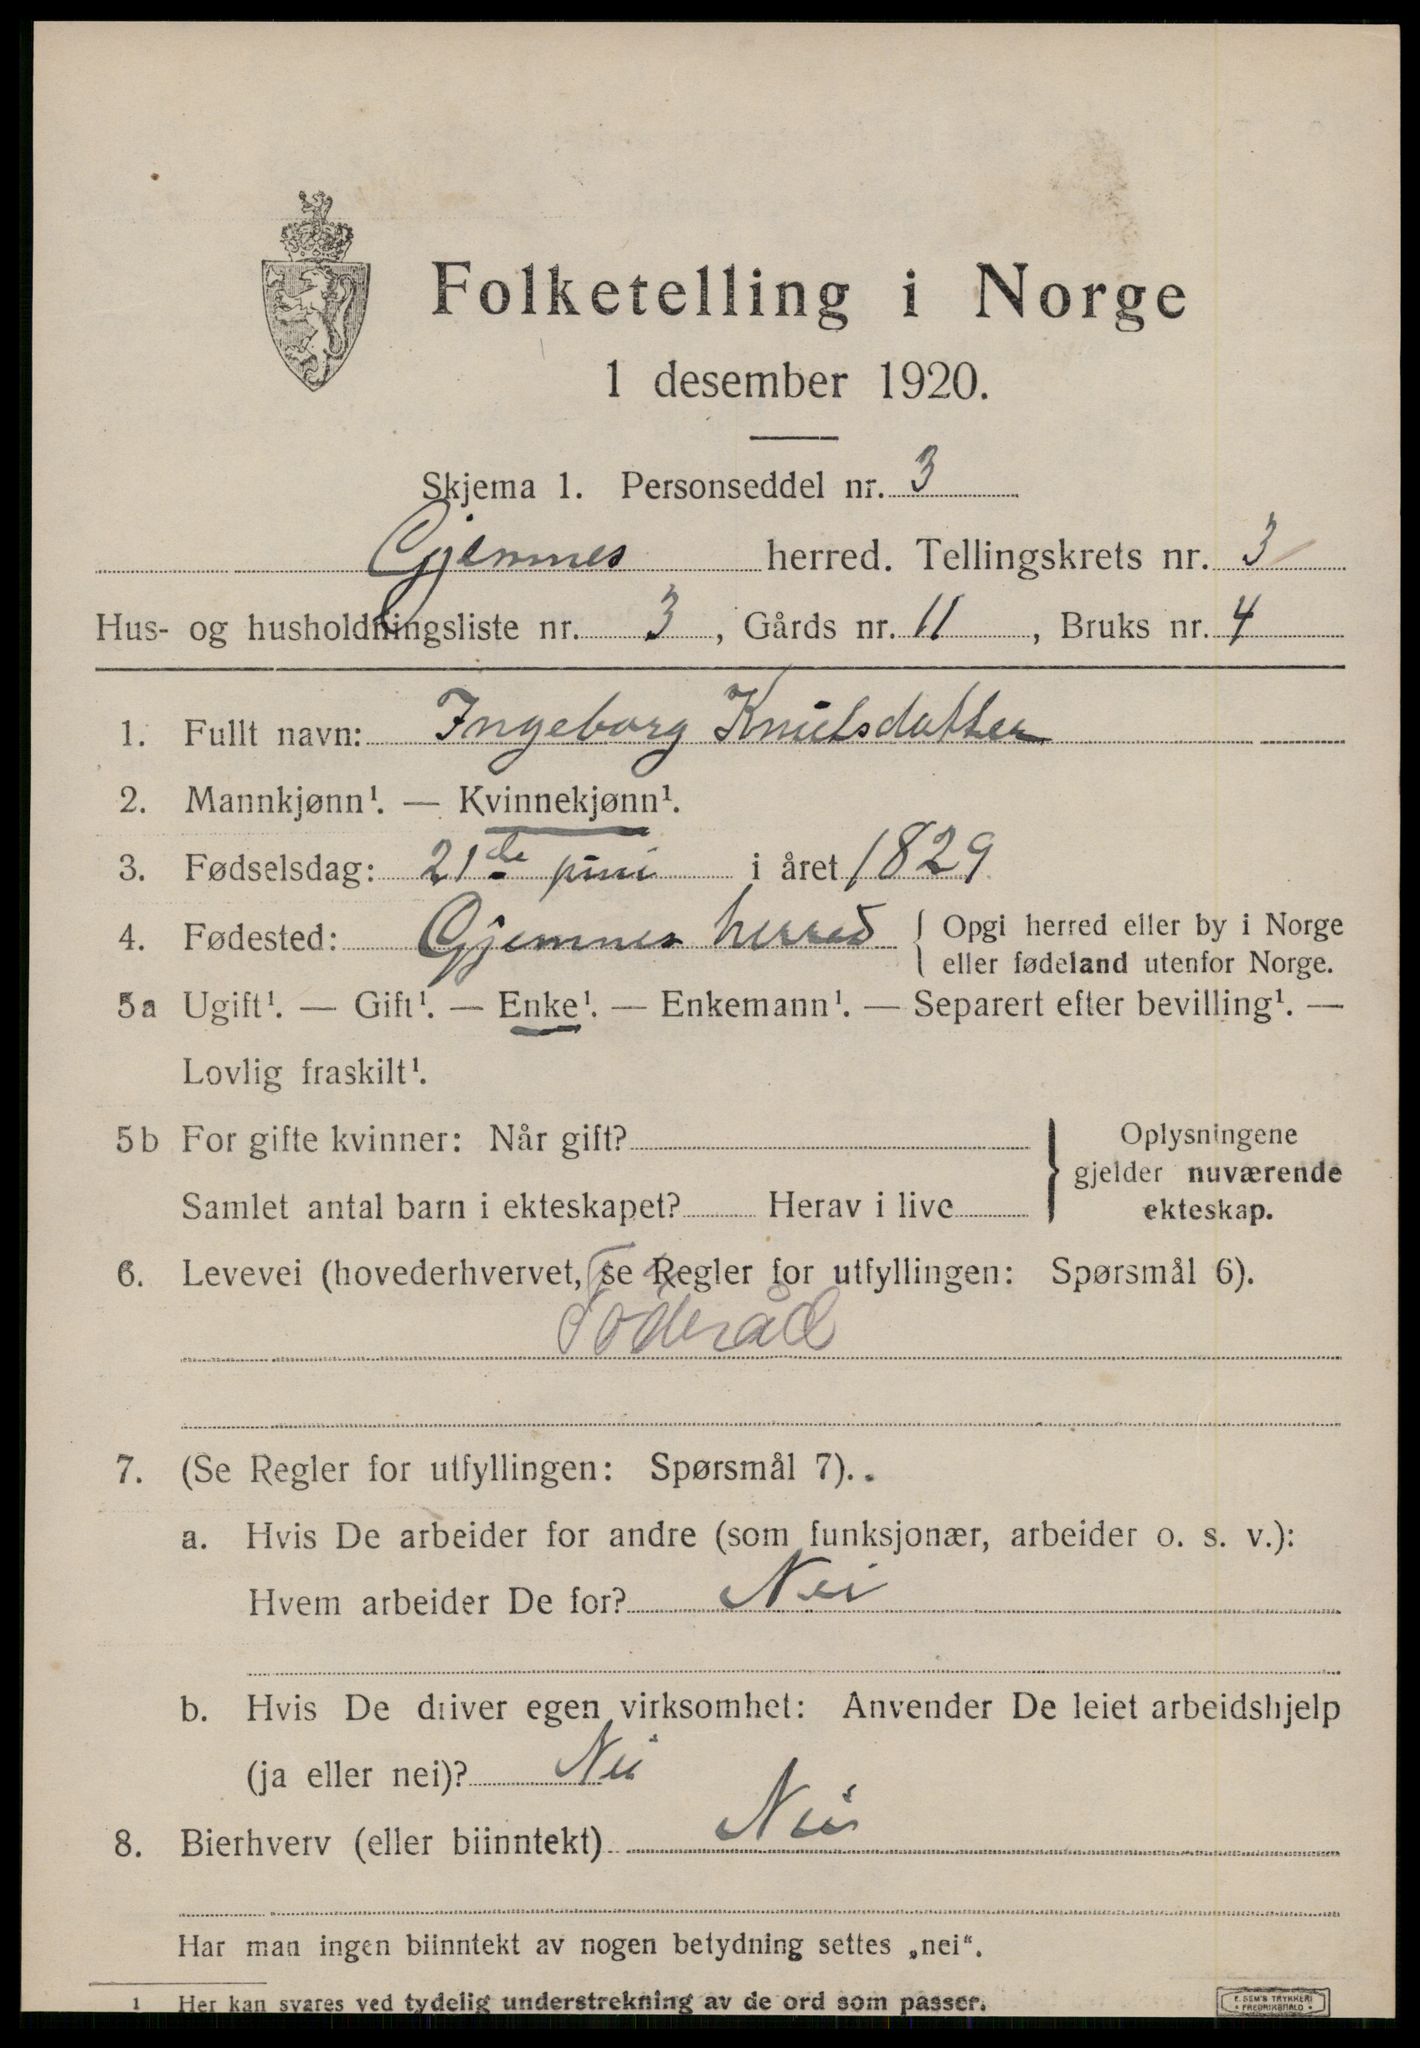 Folketelling i Norge
1 desember 1920.
Skjema 1. Personseddel nr. 3
Gjemnes herred. Tellingskrets nr. 3
Hus- og husholdningsliste nr. 3, Gårds nr. 11, Bruks nr. 4
1. Fullt navn: Ingeborg Knutsdatter
2. Mannkjønn¹. — Kvinnekjønn¹.
3. Fødselsdag: 21de juni i året 1829
4. Fødested: Gjemnes herred { Opgi herred eller by i Norge
eller fødeland utenfor Norge.
5a Ugift¹. — Gift¹. — Enke¹. — Enkemann¹. — Separert efter bevilling¹. —
Lovlig fraskilt¹.
5b For gifte kvinner: Når gift? } Oplysningene
gjelder nuværende
Samlet antal barn i ekteskapet? Herav i live ekteskap.
6. Levevei (hovederhvervet, se Regler for utfyllingen: Spørsmål 6).
Föderåd
7. (Se Regler for utfyllingen: Spørsmål 7).
a. Hvis De arbeider for andre (som funksjonær, arbeider o. s. v.):
Hvem arbeider De for? Nei
b. Hvis De driver egen virksomhet: Anvender De leiet arbeidshjelp
(ja eller nei)? Nei
8. Bierhverv (eller biinntekt) Nei
Har man ingen biinntekt av nogen betydning settes „nei“.
1 Her kan svares ved tydelig understrekning av de ord som passer.
E. SEM'S TRYKKERI
• FREDRIKSHALD •